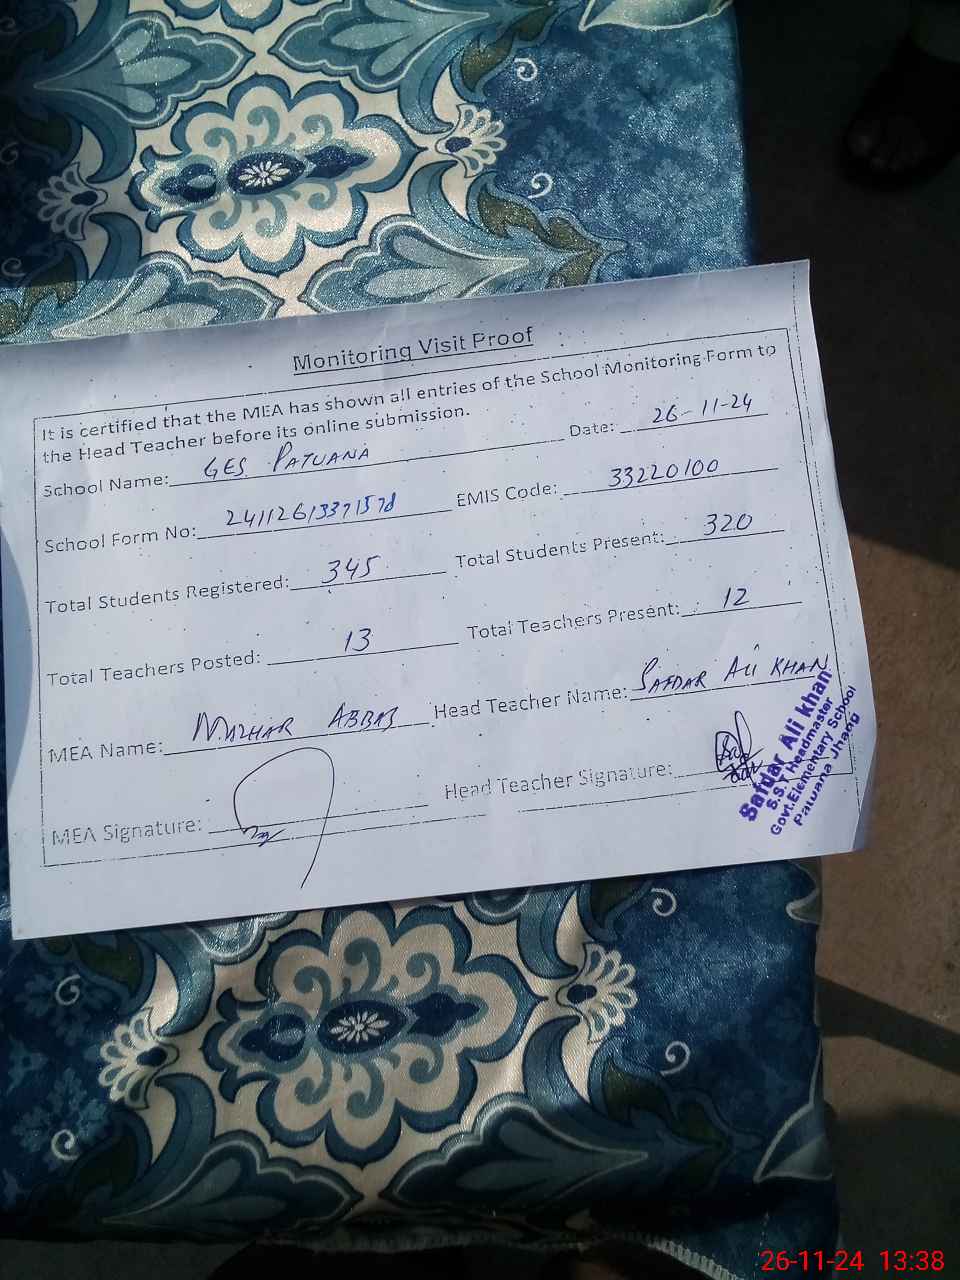 Monitoring Visit Proof
It is certified that the MEA has shown all entries of the School Monitoring Form to
the Head Teacher before its online submission.
School Name: GES PATUANA Date: 26-11-24
School Form No: 24112613371578 EMIS Code: 33220100
Total Students Registered: 345 Total Students Present: 320
Total Teachers Posted: 13 Total Teachers Present: 12
MEA Name: MAZHAR ABBAS Head Teacher Name: SAFDAR ALI KHAN
MEA Signature: Head Teacher Signature:
Safdar Ali khan
S.S.T Headmaster
Govt.Elementary School
Patuana Jhang
26-11-24 13:38